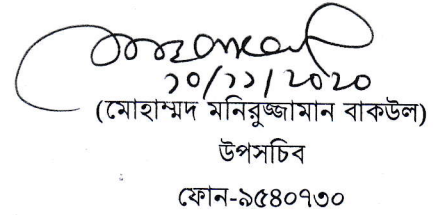 ১০/১১/২০২০
(মোহাম্মদ মনিরুজ্জামান বাকউল)
উপসচিব
ফোন-৯৫৪০৭৩০